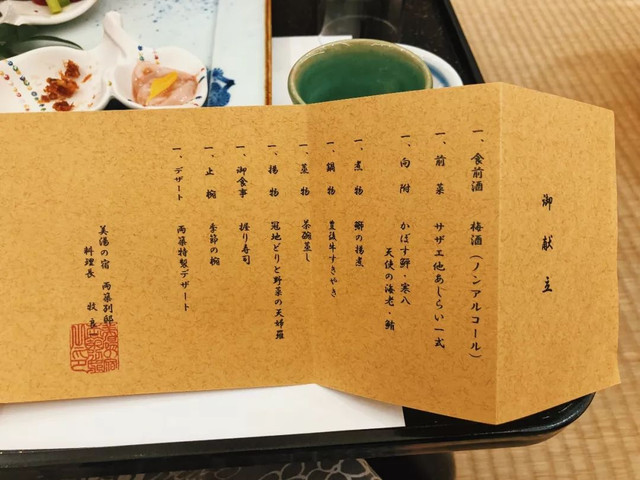 御献立
一、食前酒 梅酒（ノンアルコール）
一、前菜 サザエ他あしらい一式
一、向附 かぼす鰤・寒八
天使の海老・鮪
一、煮物 鰤の揚煮
一、鍋物 豊後牛すきやき
一、蒸物 茶碗蒸し
一、揚物 冠地どりと野菜の天婦羅
一、御食事 握り寿司
一、止椀 季節の椀
一、デザート 両築特製デザート
美湯の宿 両築別邸
料理長 牧 良